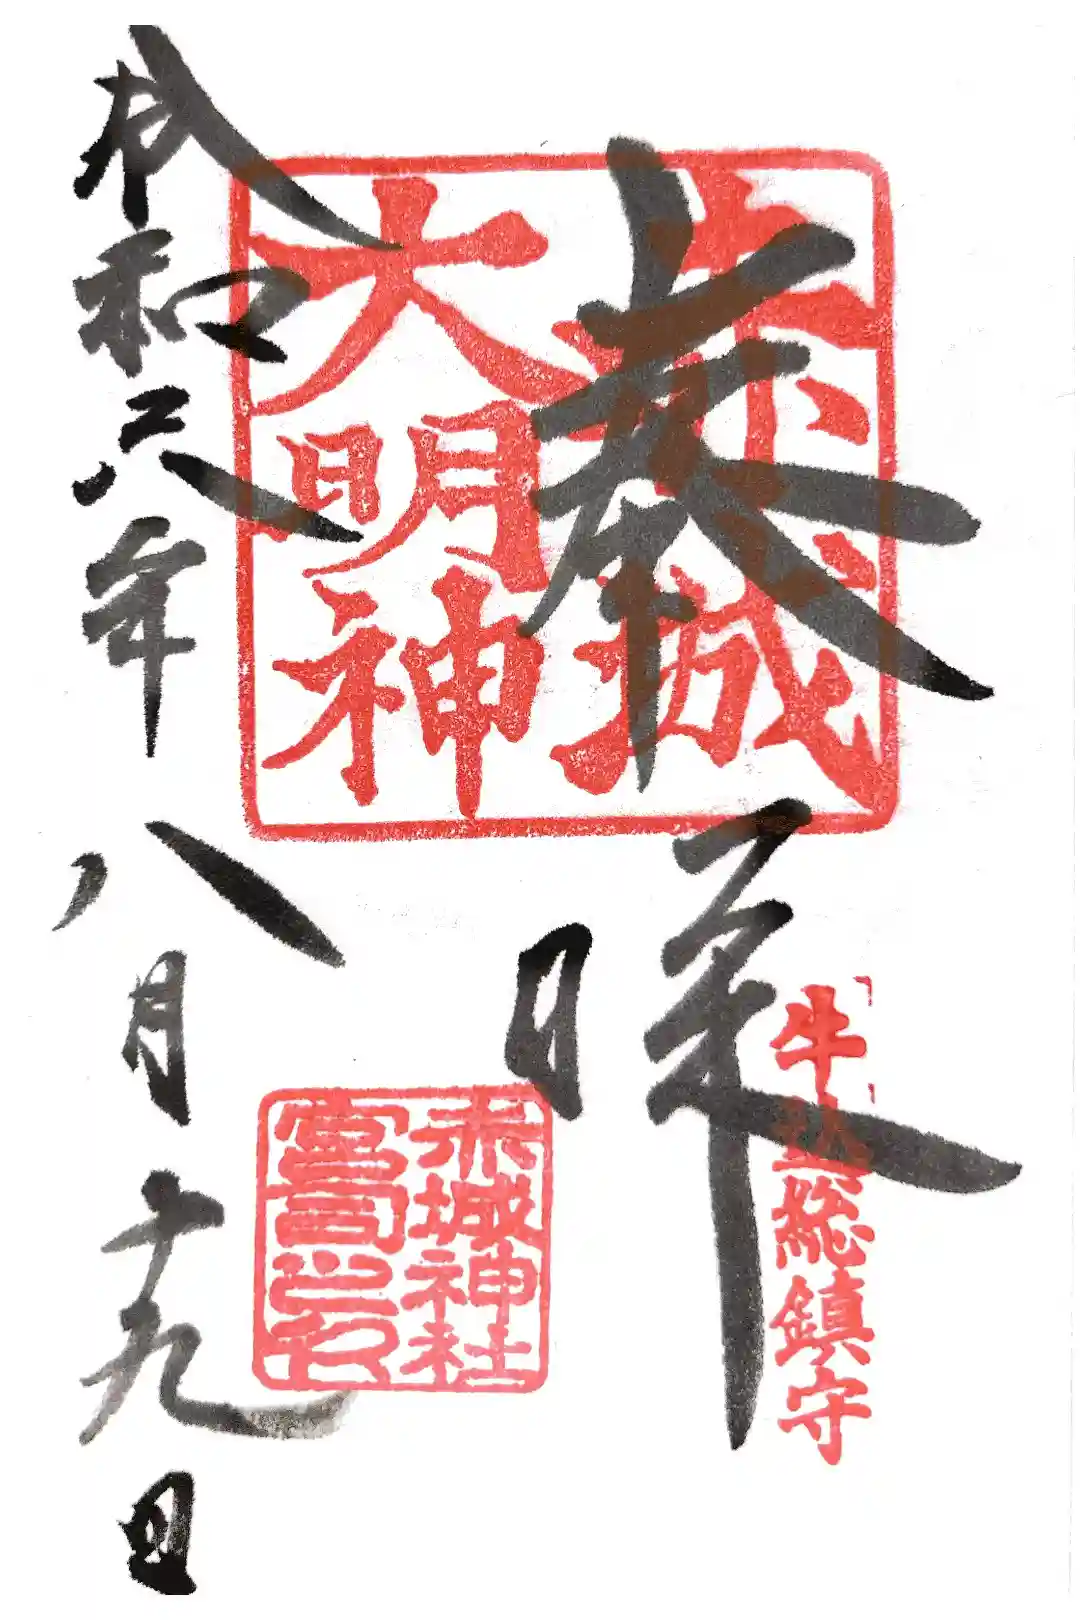 奉拝
牛込総鎮守
赤城
大明神
赤城神社
宮司之印
令和六年八月十九日